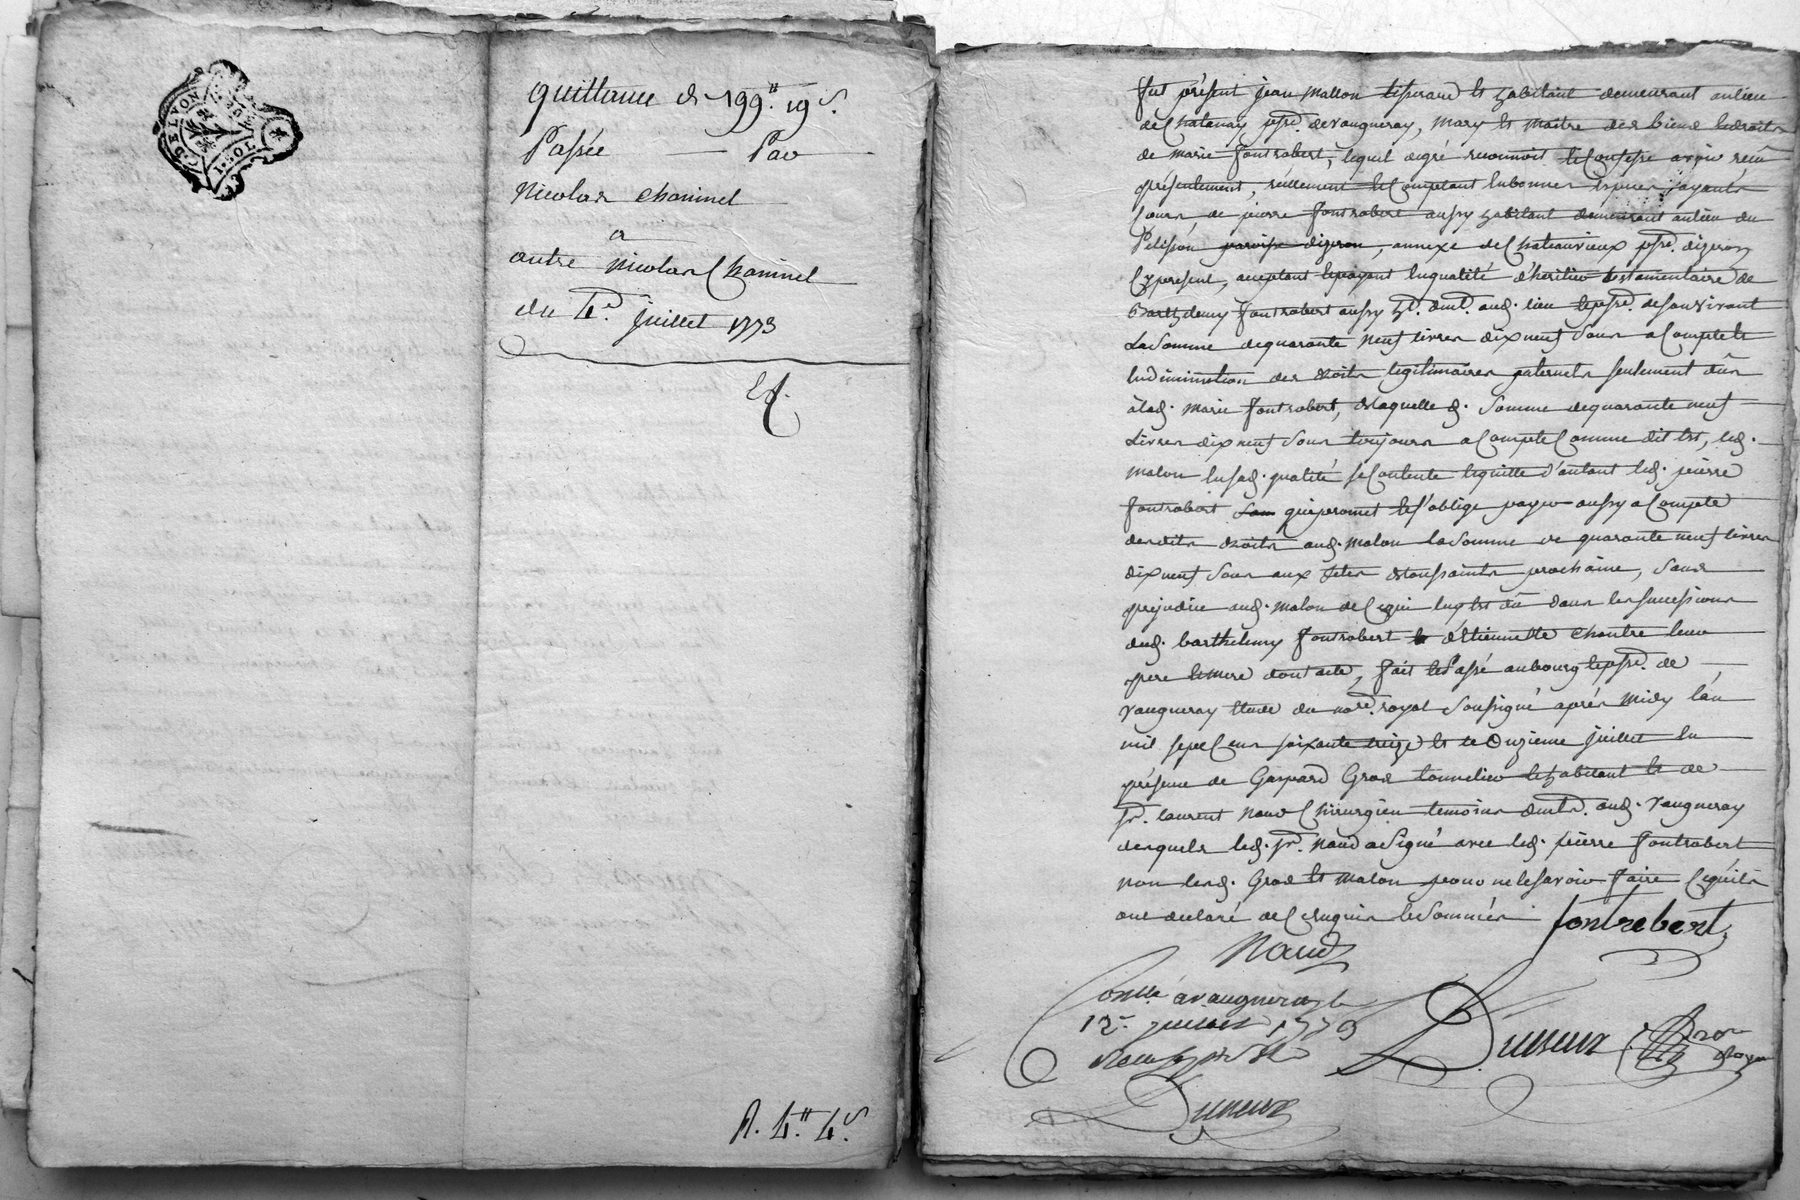 DE LYON
1.SOL
quittance de 199.ᴴ 19.ˢ
Passée Par
Nicolas Chaninel
a
autre Nicolas Chaninel
du 4.ᵉ Juillet 1773
R. 4.ᴴ 4.ˢ
fut présent jean mallon tisserand et habitant demeurant au lieu
de Chatanay psse. de vaugneray, mary et maitre des biens et droits
de marie fontrobert, lequel degré reconnoit et Confesse avoir reçu
présentement, réellement et Comptant en bonnes espèces ayants
Cours, de pierre fontrobert aussy habitant demeurant au lieu du
Pelisson paroisse dizeron, annexe de Chateauvieux psse. dizeron
Cy present, acceptant et payant en qualité d'heritier testamentaire de
Barthelemy fontrobert aussy ht. dmt. aud. lieu et psse. de son vivant
La Somme de quarante neuf livres dix neuf Sous a Compte et
en diminution des droits legitimaires paternels seulement dûs
à lad. marie fontrobert, de laquelle d. Somme de quarante neuf
Livres dix neuf Sous toujours a Compte Comme dit est, led.
malon en sad. qualité se Contente et quitte d'autant led. pierre
fontrobert qui promet et s'oblige payer aussy a Compte
desdits droits aud. malon la Somme de quarante neuf livres
dix neuf Sous aux fetes de toussaints prochaine, Sans
prejudice aud. malon de Ce qui luy est dû dans les successions
dud. barthelemy fontrobert et d'Etiennette Chantre leur
pere et mere dont acte, fait et Passé au bourg et psse. de
vaugneray étude du nore. royal Soussigné après midy l'an
mil sept Cens soixante treize et le Onzieme juillet en
présence de Gaspard Gras tonnelier et habitant et de
Sr. laurent Naud Chirurgien temoins dmts. aud. vaugneray
desquels led. Sr. Naud a Signé avec led. pierre fontrobert
non lesd. Gras et malon pour ne le savoir faire Ce qu'ils
ont declaré de Ce enquis et Sommés fontrebert
Naud
Conllé a vaugneray le
12e. juillet 1773